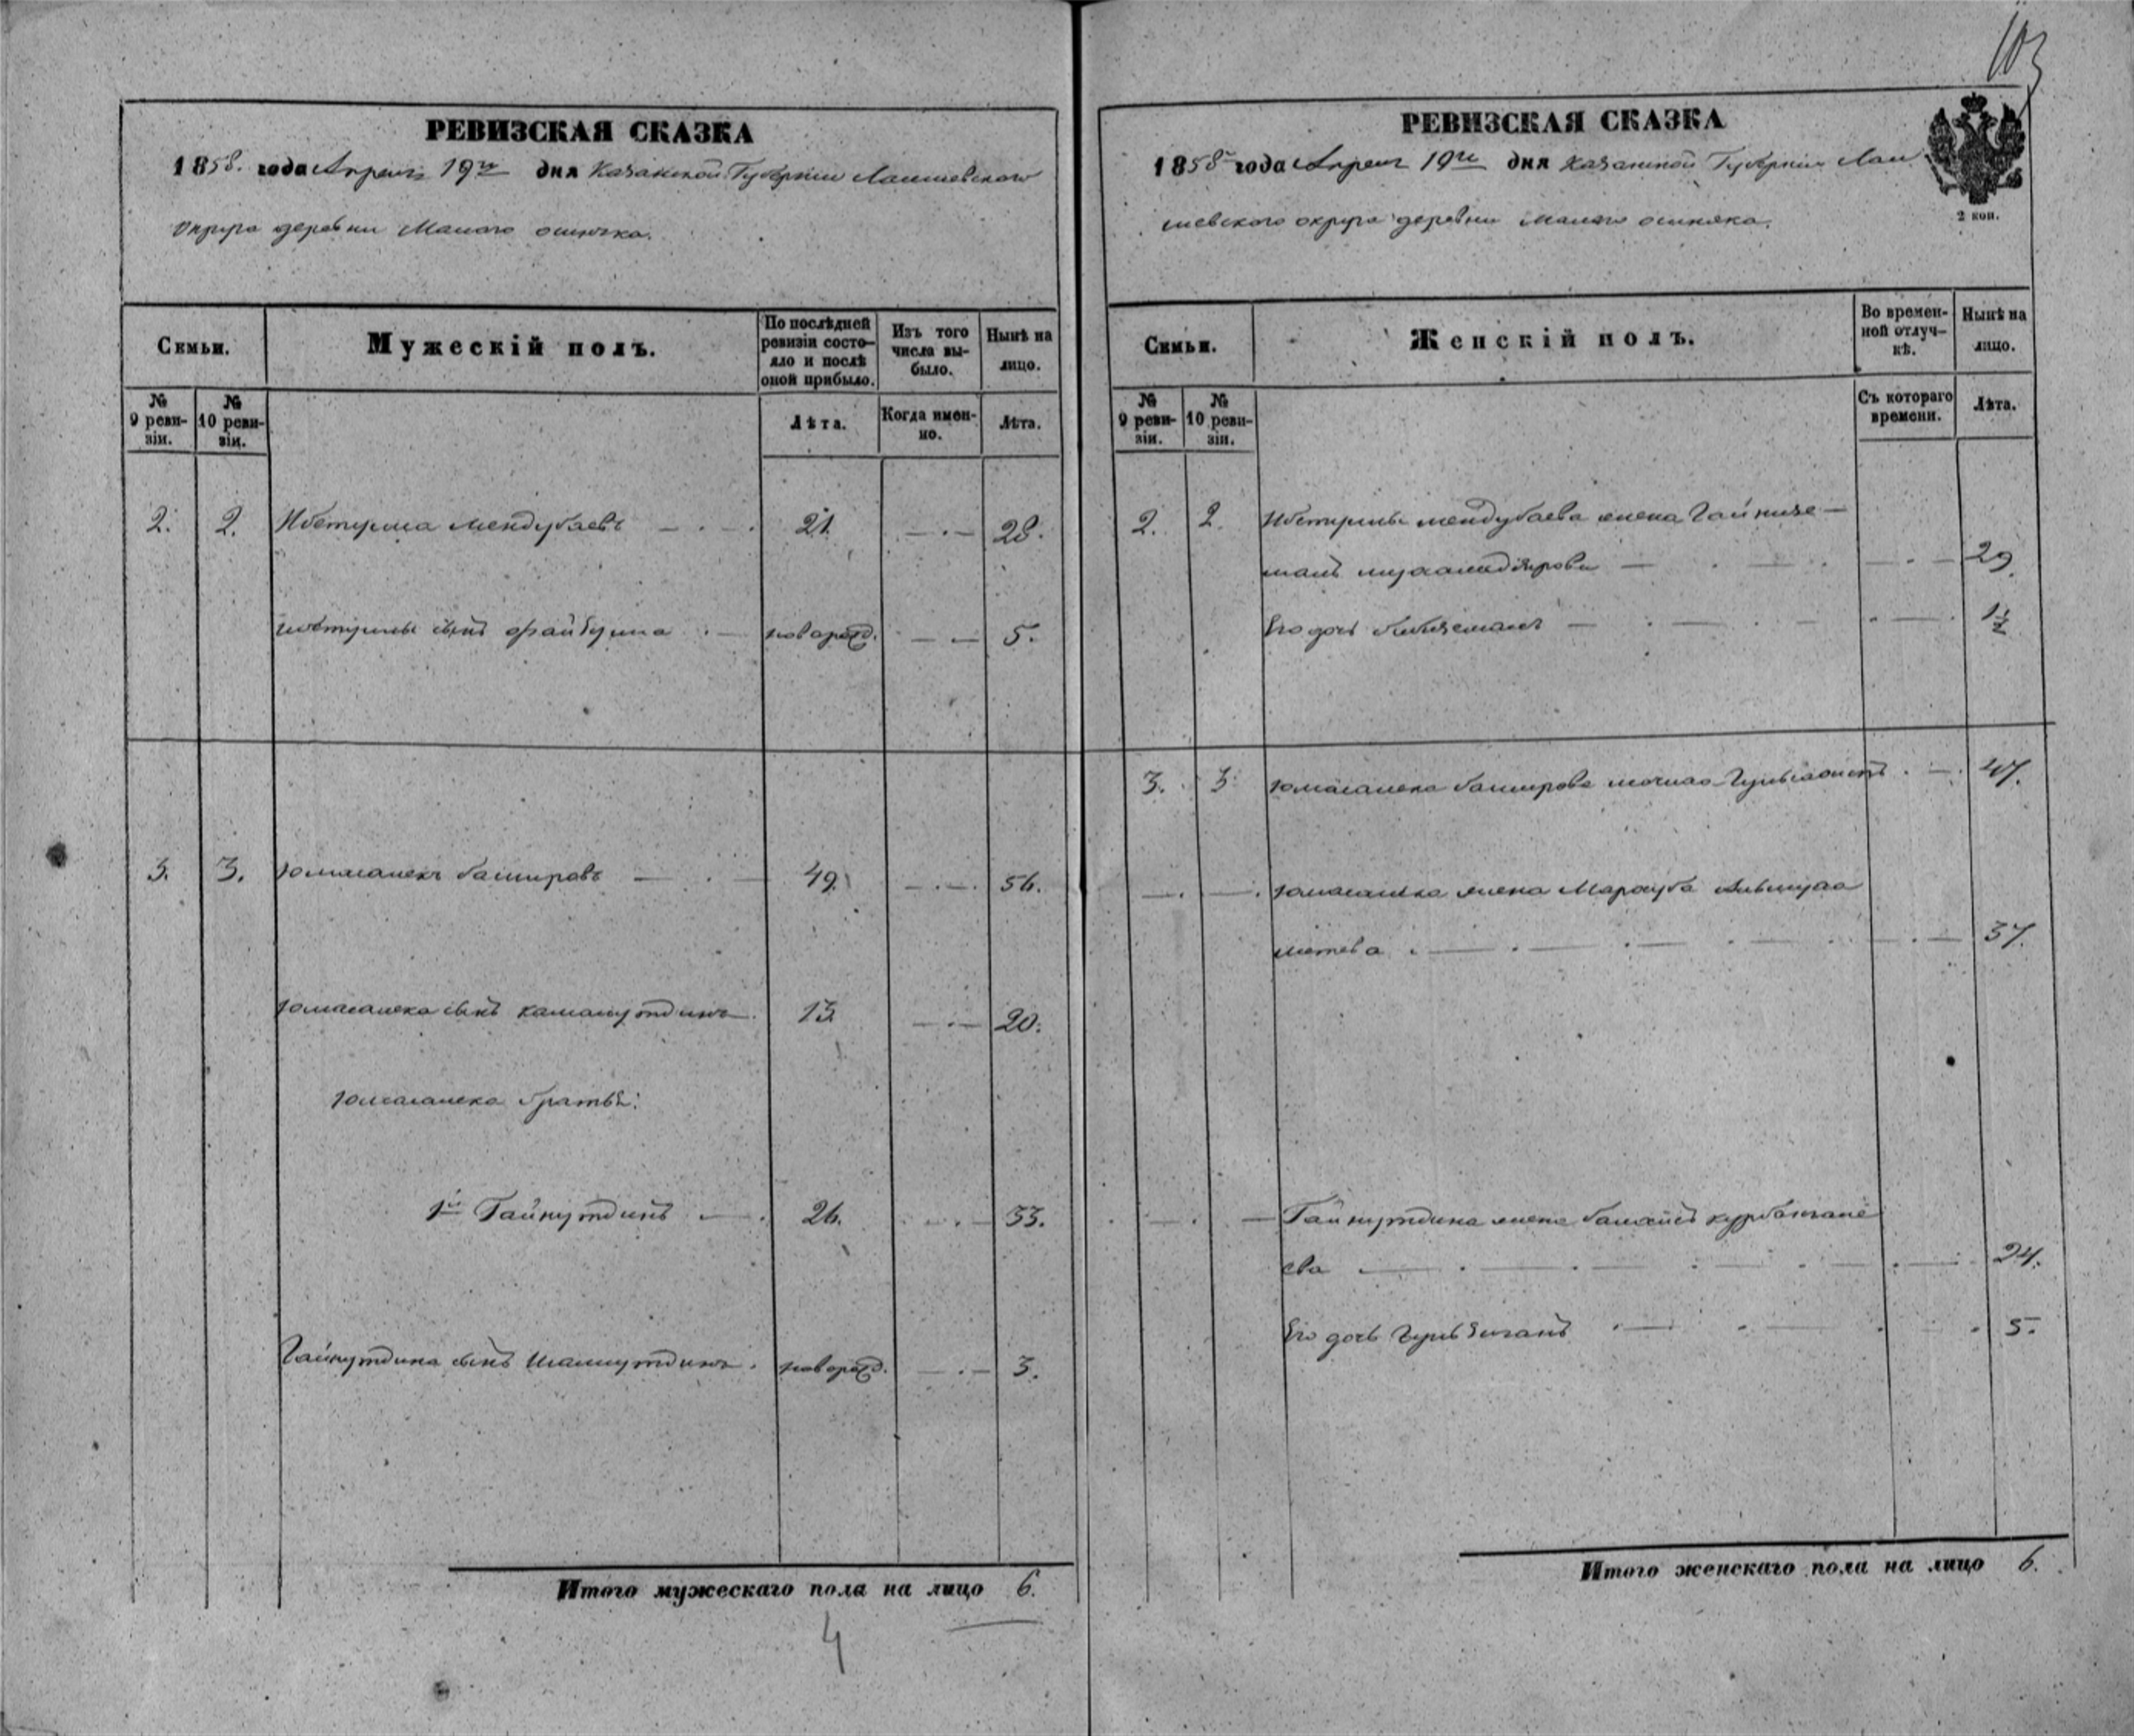 103
РЕВИЗСКАЯ СКАЗКА
1858. года Апреля 19го дня Казанской Губернии Лаишевского
Округа деревни Малаго ошняка.
Семьи.
Мужескій полъ.
По послѣдней ревизіи состояло и послѣ оной прибыло.
Изъ того числа выбыло.
Нынѣ на лицо.
№ 9 ревизіи.
№ 10 ревизіи.
Лѣта.
Когда именно.
Лѣта.
2. 2. Мендубаевъ 21. 28.
сынъ новорожд. 5.
3. 3. Юмаганекъ башировъ 49. 56.
Юмаганека сынъ камалутдинъ 13 20.
Юмаганека братья:
1й Гайнутдинъ 26. 33.
Гайнутдина сынъ Шамшутдинъ. новорожд. 3.
Итого мужескаго пола на лицо 6.
4
РЕВИЗСКАЯ СКАЗКА
1858 года Апреля 19го дня Казанской Губернии Лаи
шевского округа деревни малаго ошняка.
2 коп.
Семьи.
Женскій полъ.
Во временной отлучкѣ.
Нынѣ на лицо.
№ 9 ревизіи.
№ 10 ревизіи.
Съ котораго времени.
Лѣта.
2. 2. мендубаева жена Гайнизе
29.
Его дочь 1½
3. 3. Юмаганека баширова 47.
Юмаганека жена
метева 37.
Гайнутдина жена курбангале
ева 24.
Его дочь 5.
Итого женскаго пола на лицо 6.